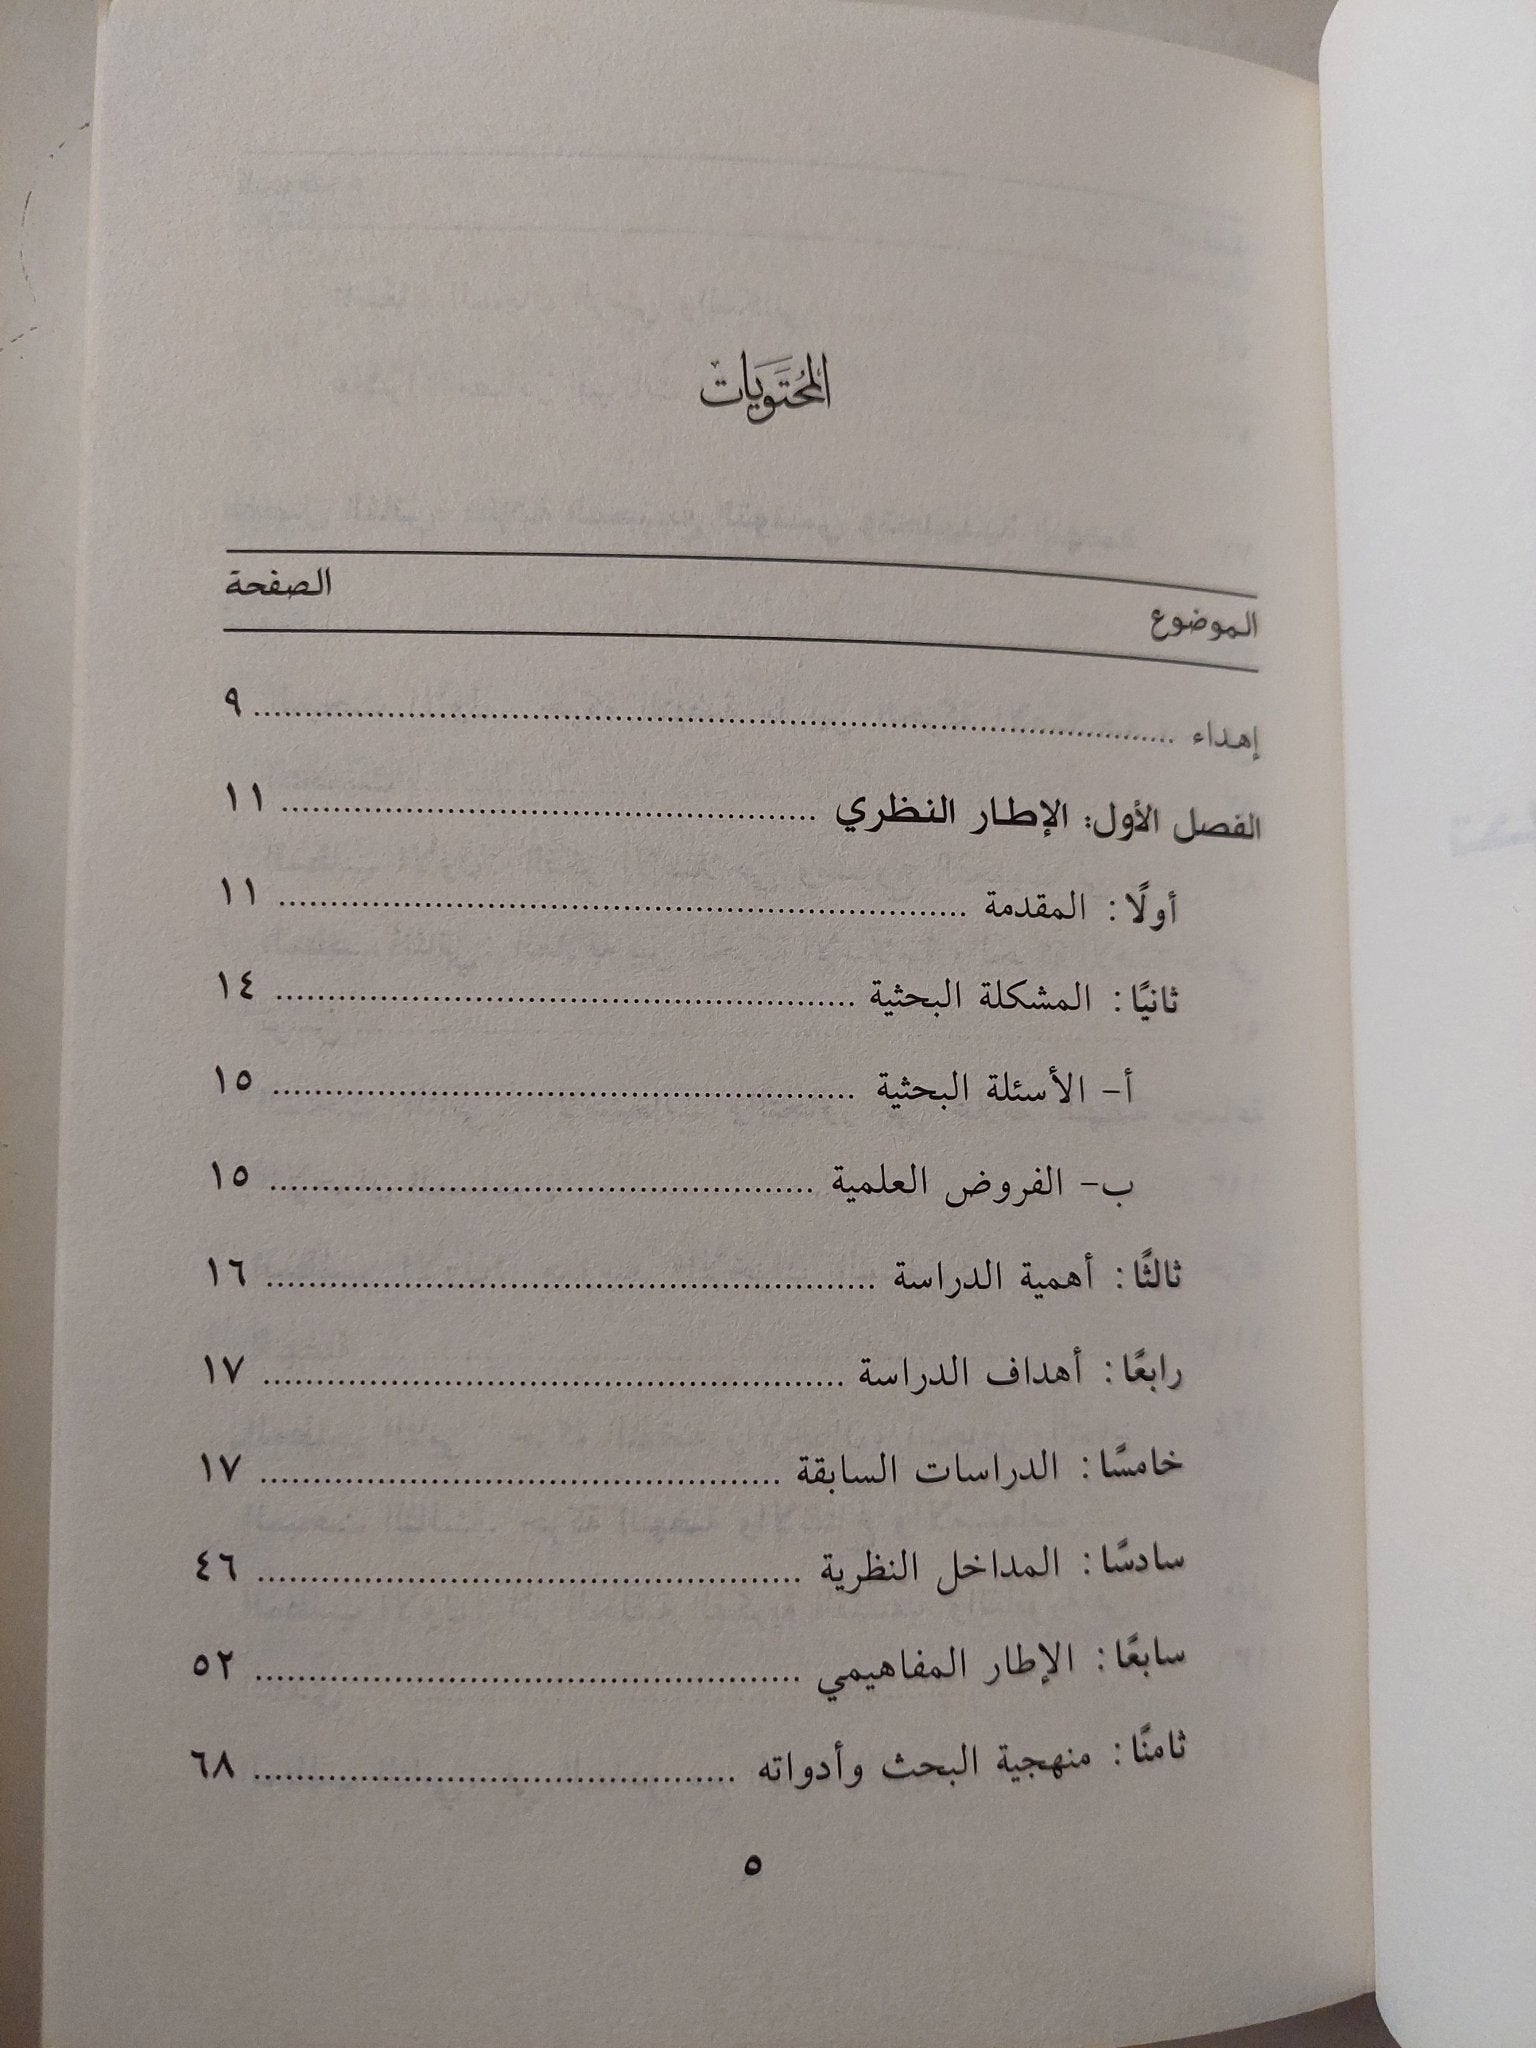 المُحتَويات
الموضوع الصفحة
إهداء ........ ٩
الفصل الأول: الإطار النظري ........ ١١
أولًا: المقدمة ........ ١١
ثانيًا: المشكلة البحثية ........ ١٤
أ- الأسئلة البحثية ........ ١٥
ب- الفروض العلمية ........ ١٥
ثالثًا: أهمية الدراسة ........ ١٦
رابعًا: أهداف الدراسة ........ ١٧
خامسًا: الدراسات السابقة ........ ١٧
سادسًا: المداخل النظرية ........ ٤٦
سابعًا: الإطار المفاهيمي ........ ٥٢
ثامنًا: منهجية البحث وأدواته ........ ٦٨
٥